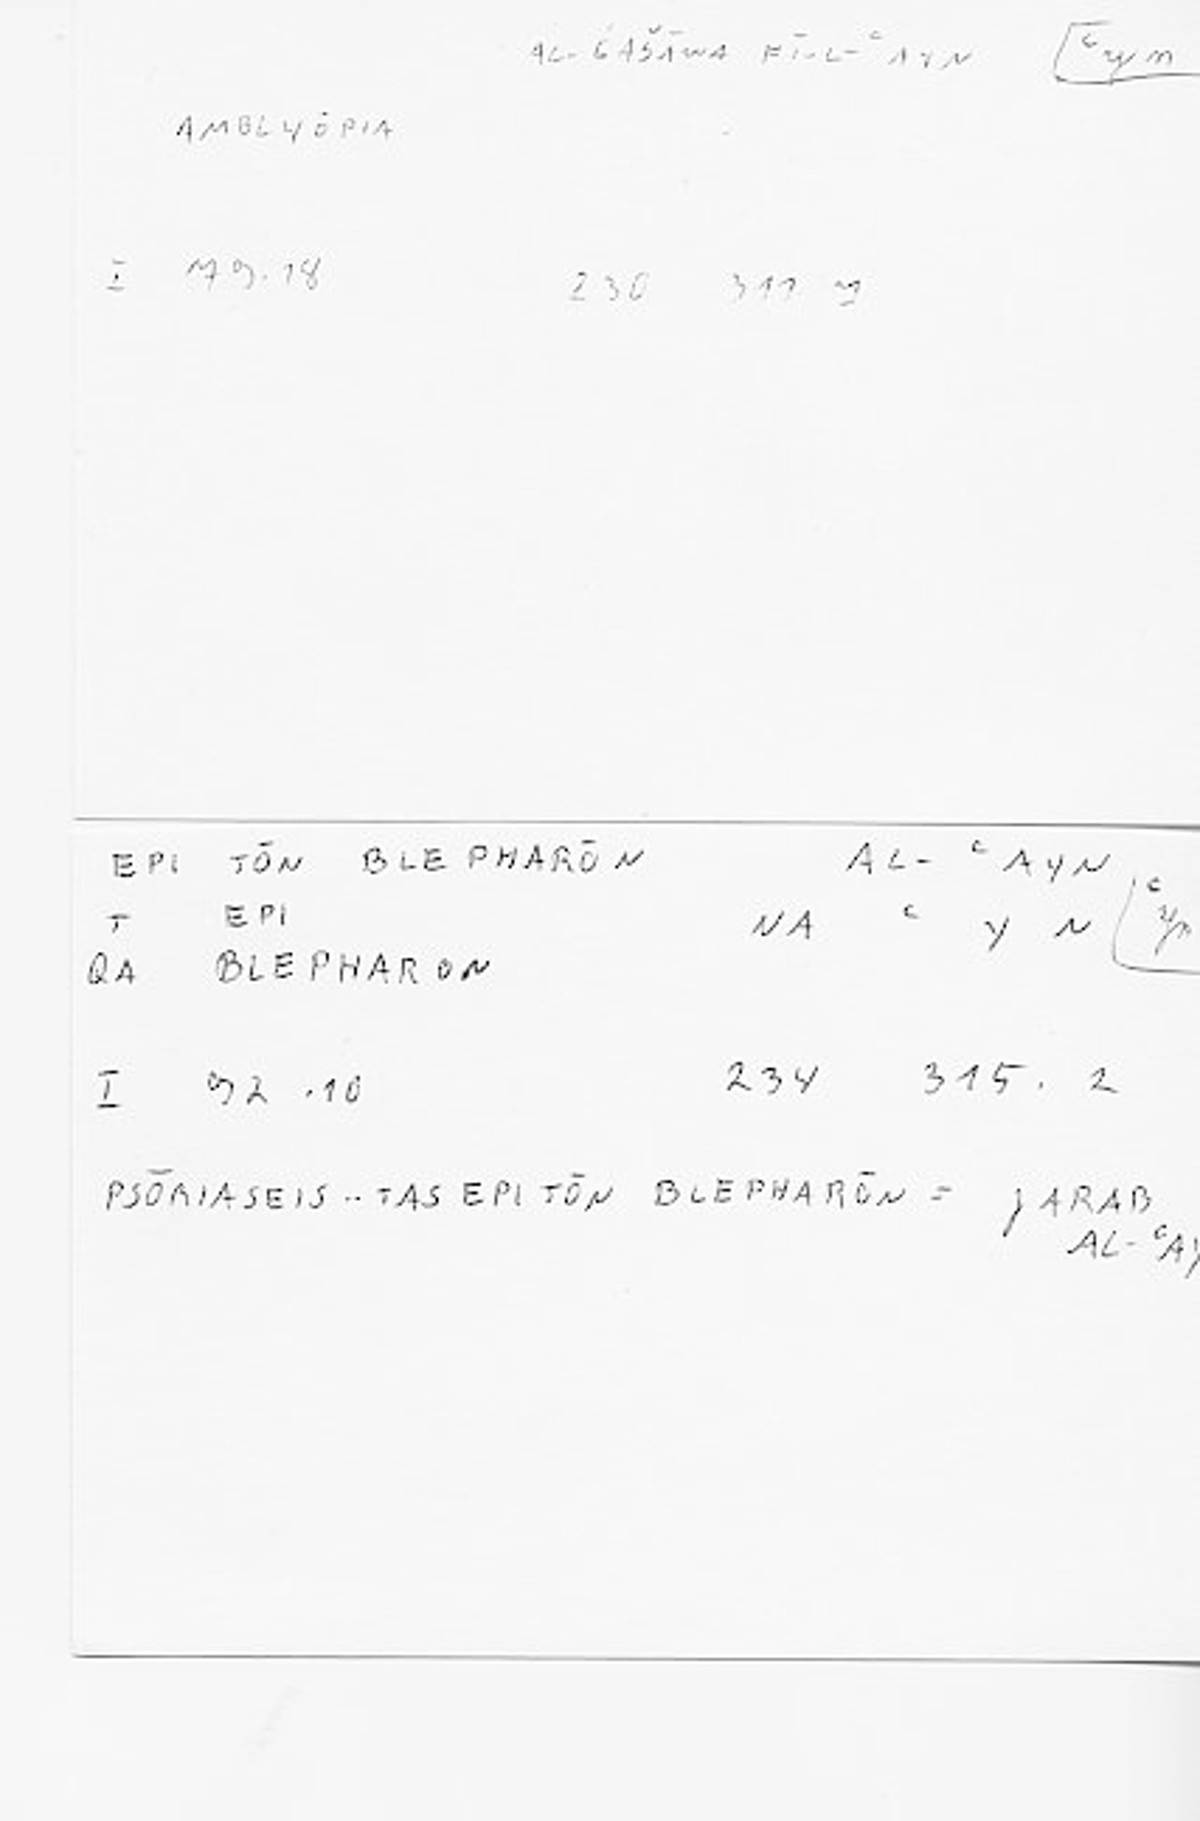 AL-ĠAŠĀWA FĪ-L-ʿAYN ʿyn
AMBLYŌPIA
I 79.18 230 311 9
EPI TŌN BLEPHARŌN AL-ʿAYN
T EPI NA ʿ Y N ʿyn
QA BLEPHARON
I 92.10 234 315. 2
PSŌRIASEIS..TAS EPI TŌN BLEPHARŌN = JARAB
AL-ʿAY